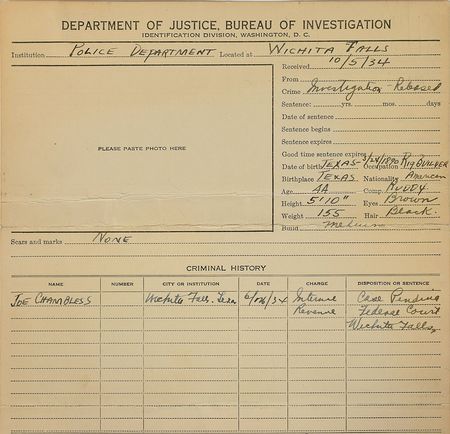 DEPARTMENT OF JUSTICE, BUREAU OF INVESTIGATION
IDENTIFICATION DIVISION, WASHINGTON, D. C.
Institution POLICE DEPARTMENT Located at WICHITA FALLS
Received 10/5/34
From
Crime Investigation - Released
Sentence: yrs. mos. days
Date of sentence
Sentence begins
Sentence expires
Good time sentence expires
PLEASE PASTE PHOTO HERE
Date of birth TEXAS- 3/24/1890 Occupation Rig Builder
Birthplace TEXAS Nationality American
Age 44 Comp. RUDDY
Height 5'10" Eyes Brown
Weight 155 Hair Black.
Build Medium
Scars and marks NONE
CRIMINAL HISTORY
NAME NUMBER CITY OR INSTITUTION DATE CHARGE DISPOSITION OR SENTENCE
JOE CHAMBLESS Wichita Falls, Texas 6/26/34 Internal Case Pending
Revenue Federal Court
Wichita Falls